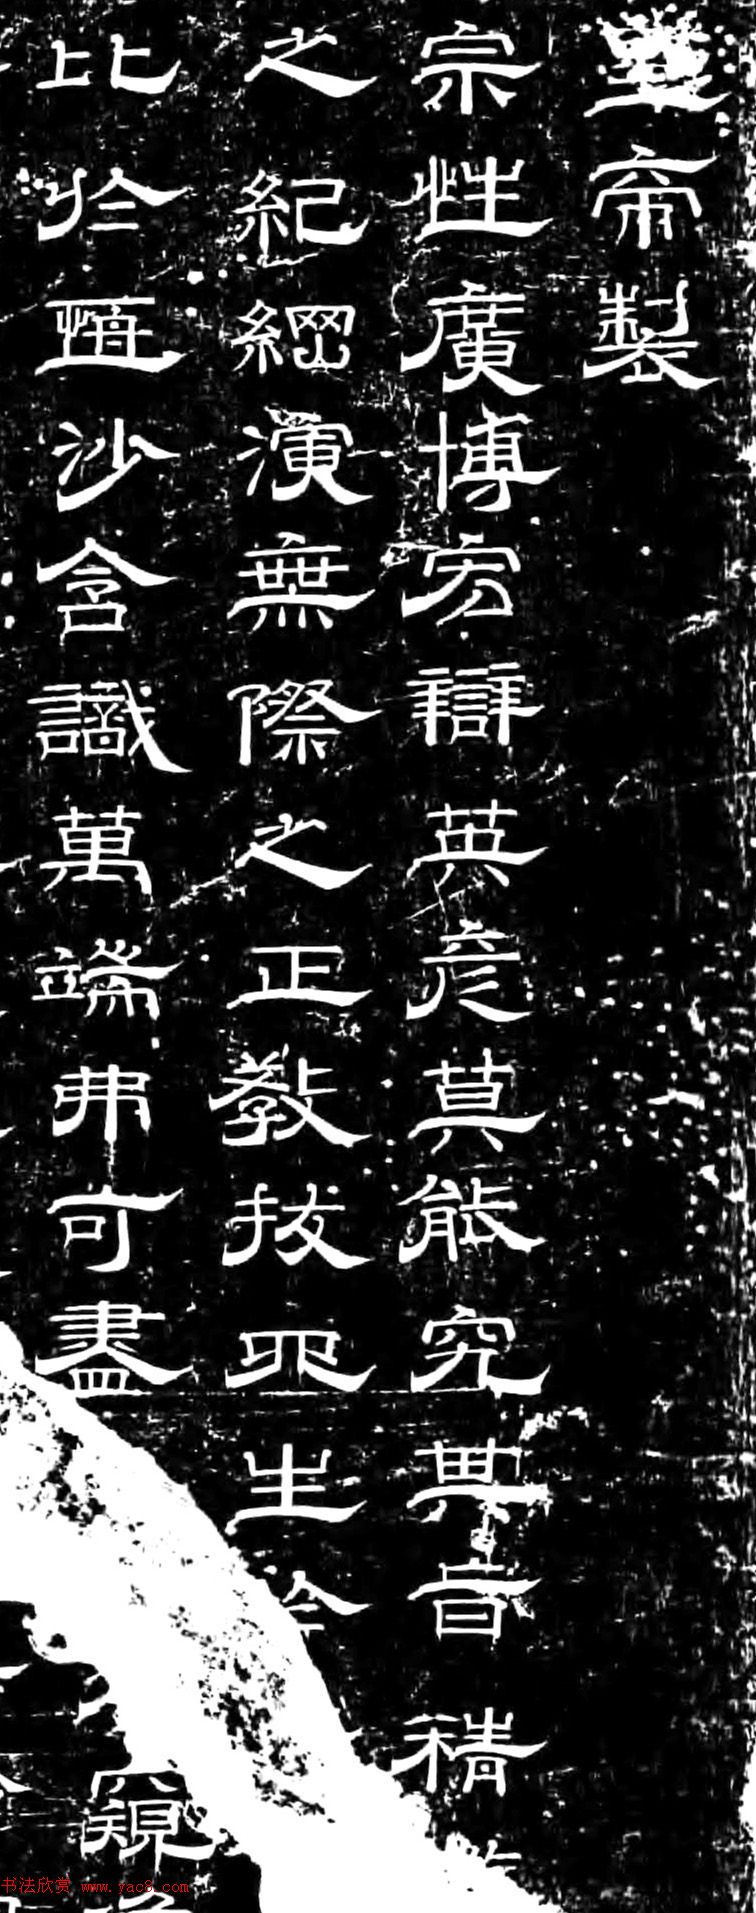 皇帝製
宗性廣博宏辯英彥莫能究其旨精
之紀綱演無際之正教拔四生於
比於恆沙含識萬端弗可盡窺
书法欣赏 www.yac8.com